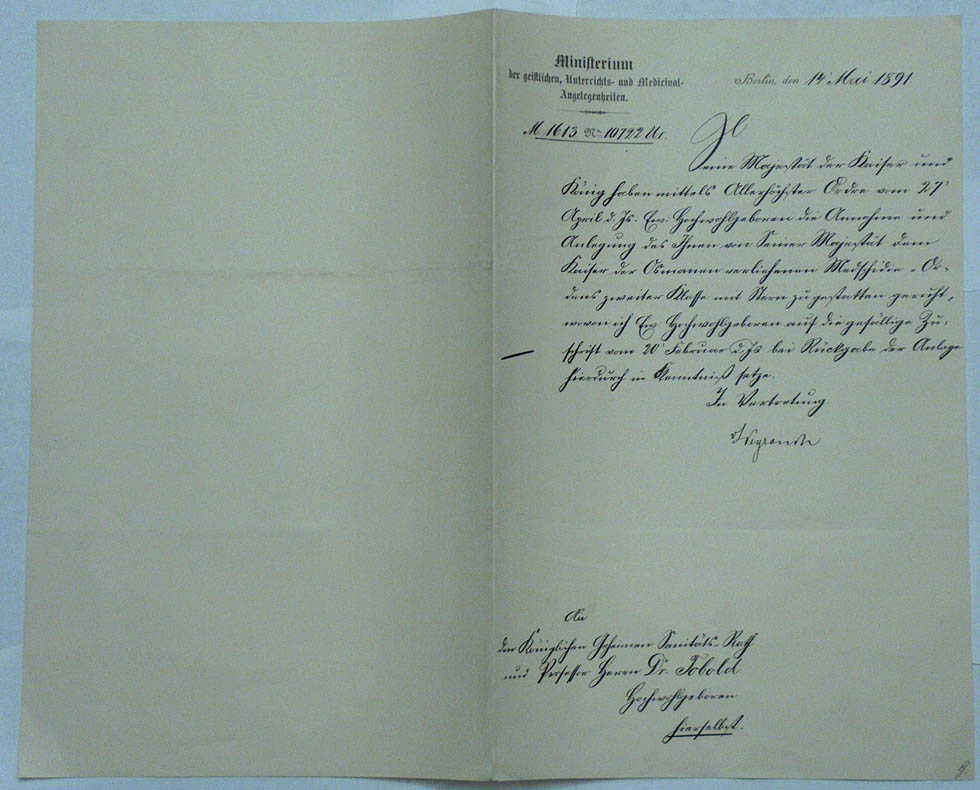 Ministerium
der geistlichen, Unterrichts- und Medicinal-
Angelegenheiten.
Berlin, den 14 Mai 1891.
M. 1613 No 10722 U I.
Seine Majestät der Kaiser und
König haben mittels Allerhöchster Ordre vom 27
April d. Js. Ew: Hochwohlgeboren die Annahme und
Anlegung des Ihnen von Seiner Majestät dem
Kaiser der Osmanen verliehenen Medschidie-Or-
dens zweiter Klasse mit Stern zu gestatten geruht,
wovon ich Ew: Hochwohlgeboren auf die gefällige Zu-
schrift vom 20 Februar d. Js bei Rückgabe der Anlage
hierdurch in Kenntniß setze.
In Vertretung.
An
den Königlichen Geheimen Sanitäts-Rath
und Professor Herrn Dr. Tobold
Hochwohlgeboren
hierselbst.